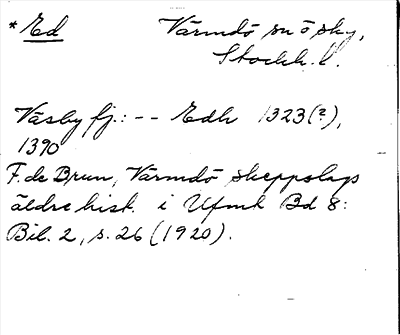 *Ed Värmdö sn ö sky,
Stockh. l.
Väsby fj.: -- Edh 1323(?),
1390
F. de Brun, Värmdö skeppslags
äldre hist. i Ufmt Bd 8:
Bil. 2, s. 26 (1920).